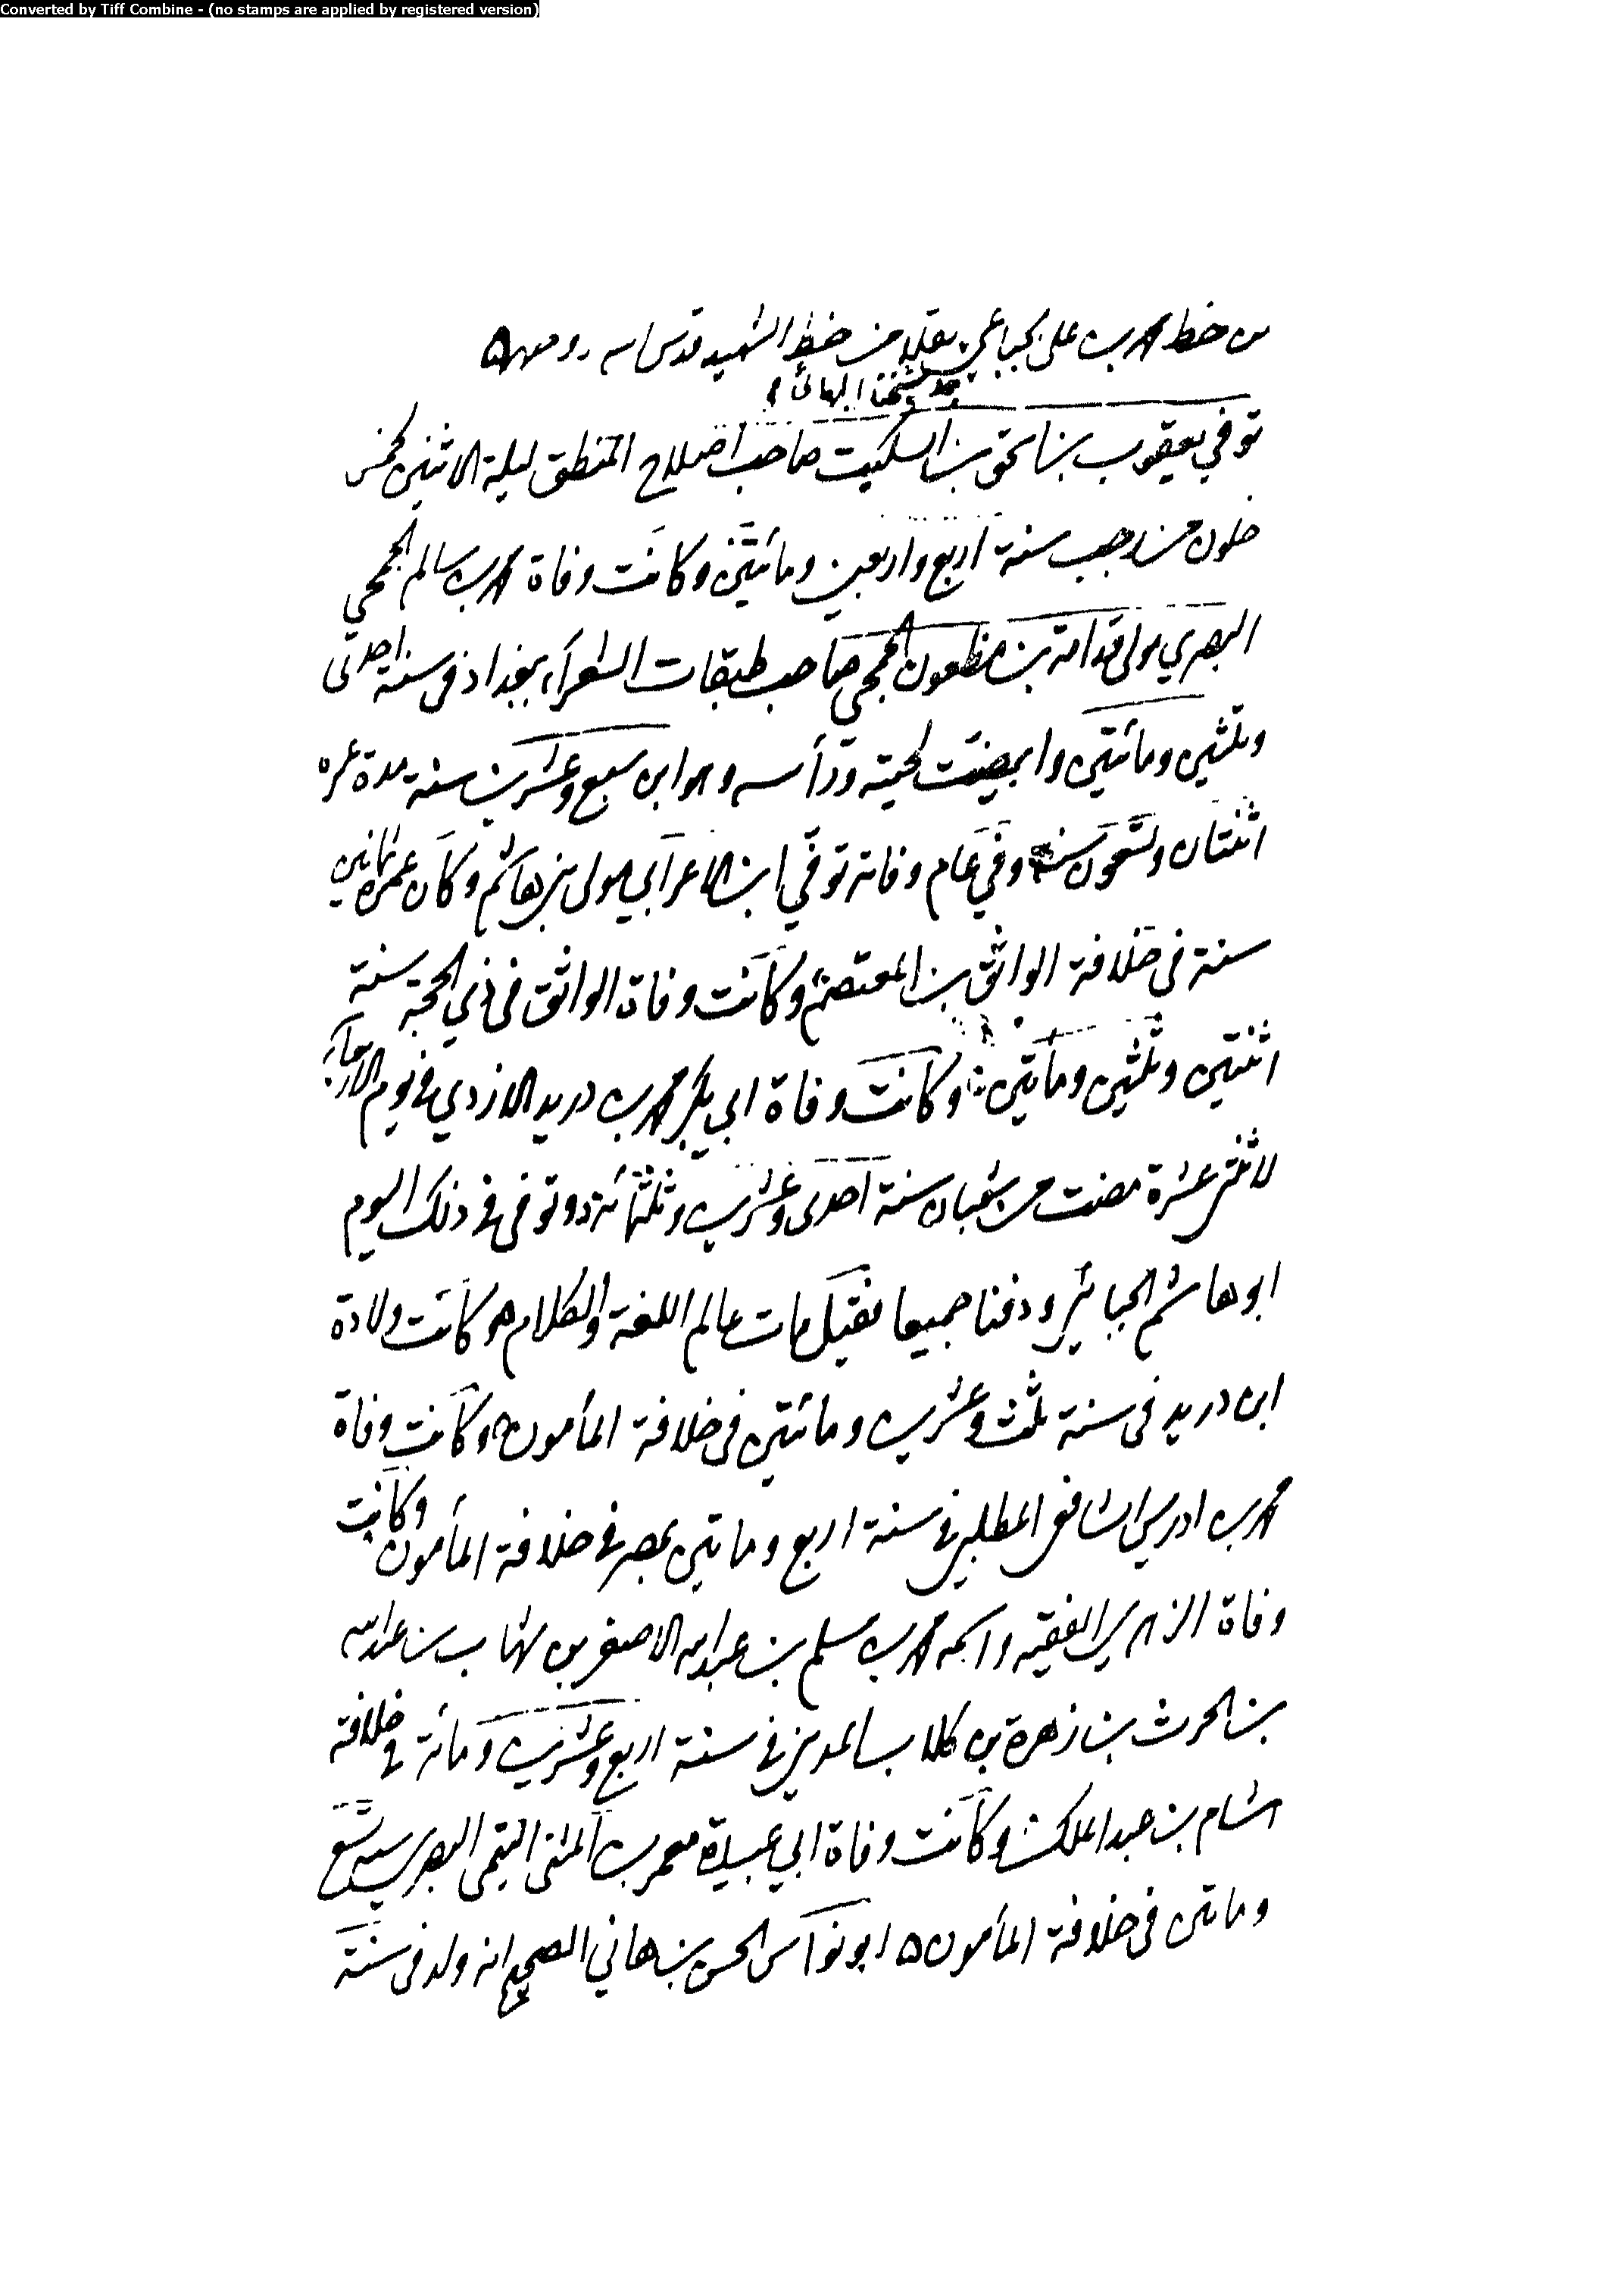 Converted by Tiff Combine - (no stamps are applied by registered version)
من خط محمد بن علي الجباعي نقلا من خط الشهيد قدس الله روحهما
جد شيخنا البهائي
توفي يعقوب بن اسحق بن السكيت صاحب اصلاح المنطق ليلة الاثنين لخمس
خلون من رجب سنة اربع واربعين ومائتين وكانت وفاة محمد بن سالم الجمحي
البصري مولى قدامة بن مظعون الجمحي صاحب طبقات الشعراء ببغداد في سنة احدى
وثلثين ومائتين وابيضت لحيته ورأسه وهو ابن سبع وعشرين سنة مدة عمره
اثنتان وتسعون سنة وفي عام وفاته توفي ابن الاعرابي مولى بني هاشم وكان عمره ثمانين
سنة في خلافة الواثق بن المعتصم وكانت وفاة الواثق في ذي الحجة سنة
اثنتين وثلثين ومأتين وكانت وفاة ابي بكر محمد بن دريد الازدي في يوم الاربعاء
لاثنتي عشرة مضت من شعبان سنة احدى وعشرين وثلثمائة وتوفي في ذلك اليوم
ابو هاشم الجبائي ودفنا جميعا فقيل مات عالم اللغة والكلام وكانت ولادة
ابن دريد في سنة ثلث وعشرين ومائتين في خلافة المأمون وكانت وفاة
محمد بن ادريس الشافعي المطلبي في سنة اربع ومأتين بمصر في خلافة المأمون وكانت
وفاة الزهري الفقيه واسمه محمد بن مسلم بن عبد الله الاصغر بن شهاب بن عبد الله
بن الحرث بن زهرة بن كلاب المديني في سنة اربع وعشرين ومائة في خلافة
هشام بن عبد الملك وكانت وفاة ابي عبيدة معمر بن المثنى التيمي البصري سنة تسع
ومأتين في خلافة المأمون ابو نواس الحسن بن هاني الصحيح انه ولد في سنة